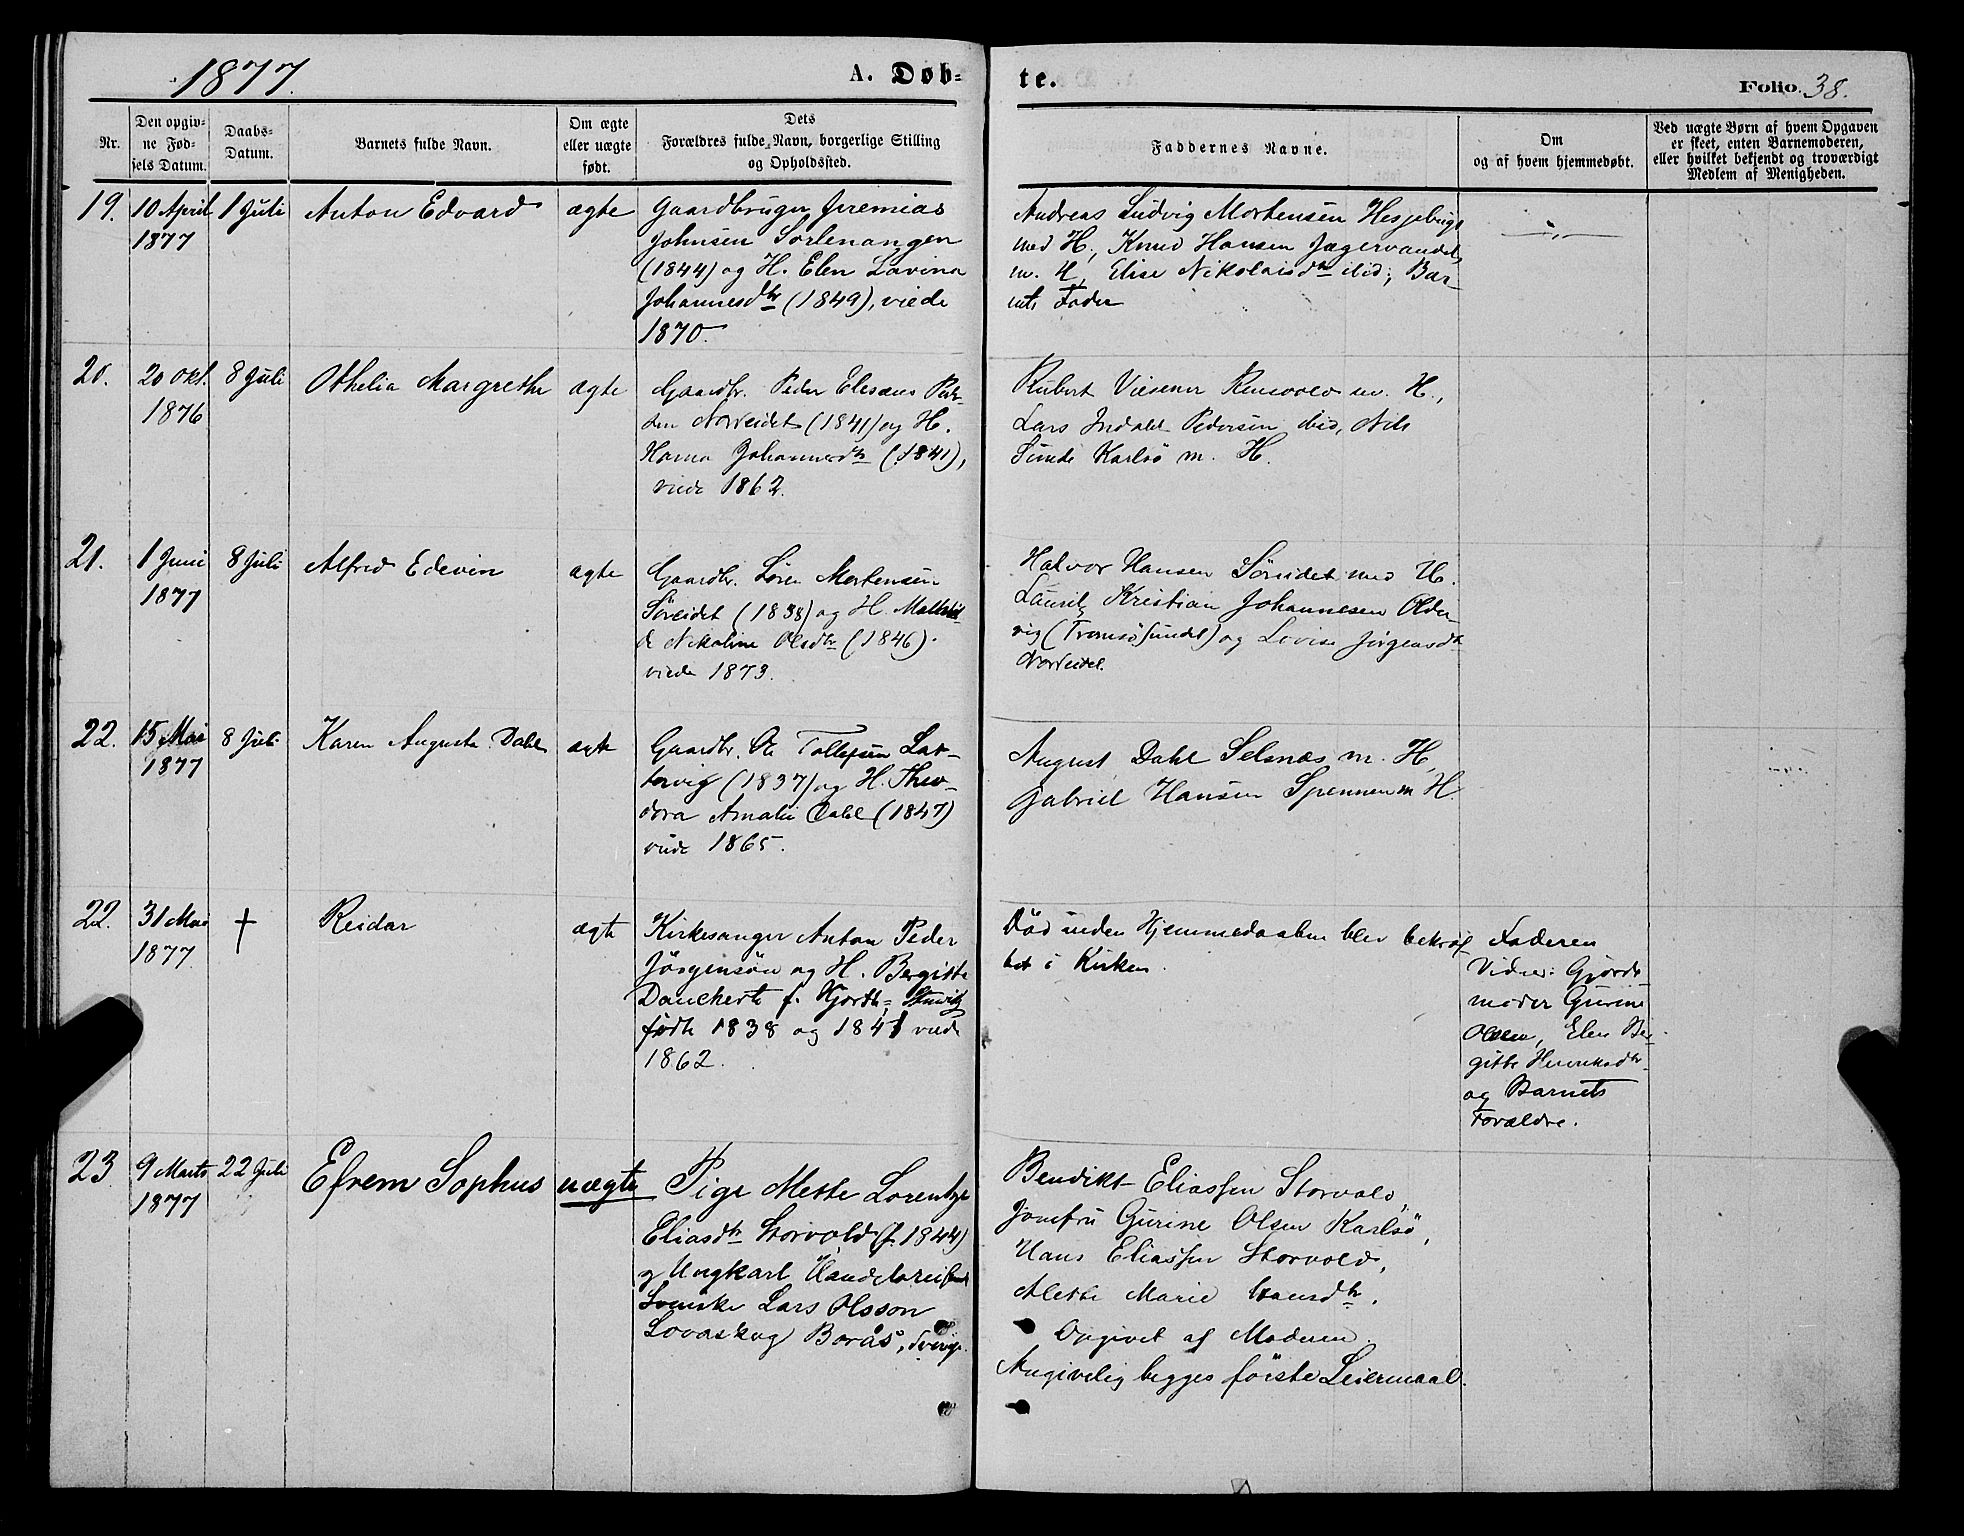 1877.
A. Døb-
te.
Folio 38.
Nr.
Den opgiv-
ne Fød-
sels Datum.
Daabs-
Datum.
Barnets fulde Navn.
Om ægte
eller uægte
født.
Dets
Forældres fulde Navn, borgerlige Stilling
og Opholdssted.
Faddernes Navne.
Om
og af hvem hjemmedøbt.
Ved uægte Børn af hvem Opgaven
er skeet, enten Barnemoderen,
eller hvilket bekjendt og troværdigt
Medlem af Menigheden.
19.
10 April
1877
1 Juli
Anton Edvard
ægte
Gaardbruger Jeremias
Johnsen Sørlenangen
(1844) og H. Elen Lavina
Johannesdtr (1849), viede
1870.
Andreas Ludvig Mortensen
med H., Knud Hansen Jægervandet
m. H, Elise Nikolaisdtr ibid; Bar-
nets Fader
20.
20 Okt.
1876
8 Juli
Othelia Margrethe
ægte
Gaardbr. Peder Elesæus Peder-
sen Nordeidet (1841) og H.
Hanna Johannesdtr (1841),
viede 1862.
Rubert Viesener m. H.,
Lars Indahl Pedersen ibid, Nils
Sunde Karlsø m. H.
21.
1 Juni
1877
8 Juli
Alfred Edevin
ægte
Gaardbr. Sören Mortensen
Söreidet (1838) og H. Mathil-
de Nikoline Olsdtr (1846)
viede 1873.
Halvor Hansen Söreidet med H.
Lauritz Kristian Johannesen Older
vig (Tromsösundet) og Lovise Jörgensdtr
Nordeidet.
22.
15 Mai
1877
8 Juli
Karen Augusta Dahl
ægte
Gaardbr. Ole Tollefsen Lat-
tervig (1837) og H. Theo-
dora Amalie Dahl (1847)
viede 1865.
August Dahl Selsnæs m. H,
Gabriel Hansen Spennen m H.
22.
31 Mai
1877
†
Reidar
ægte
Kirkesanger Anton Peder
Jörgensön og H. Bergitte
Danckerte f. Hjorth-
födte 1838 og 1841 viede
1862.
Död inden Hjemmedaaben blev bekræf
tet i Kirken.
Faderen
Vidner: Gjorde
moder Gurine
Olsen, Elen Ber-
gitte Henriksdtr
og Barnets
Forældre.
23
9 Marts
1877
22 Juli
Efrem Sophus
uægte
Pige Mette Lorentze
Eliasdtr Storvold (f. 1844)
og Ungkarl
Svenske Lars Olsson
Lovaskog Borås, Sverige.
Bendikt Eliassen Storvold,
Jomfru Gurine Olsen Karlsö,
Hans Eliassen Storvold,
Alette Marie Hansdtr.
Opgivet af Moderen.
Angivelig begges förste Leiermaal.